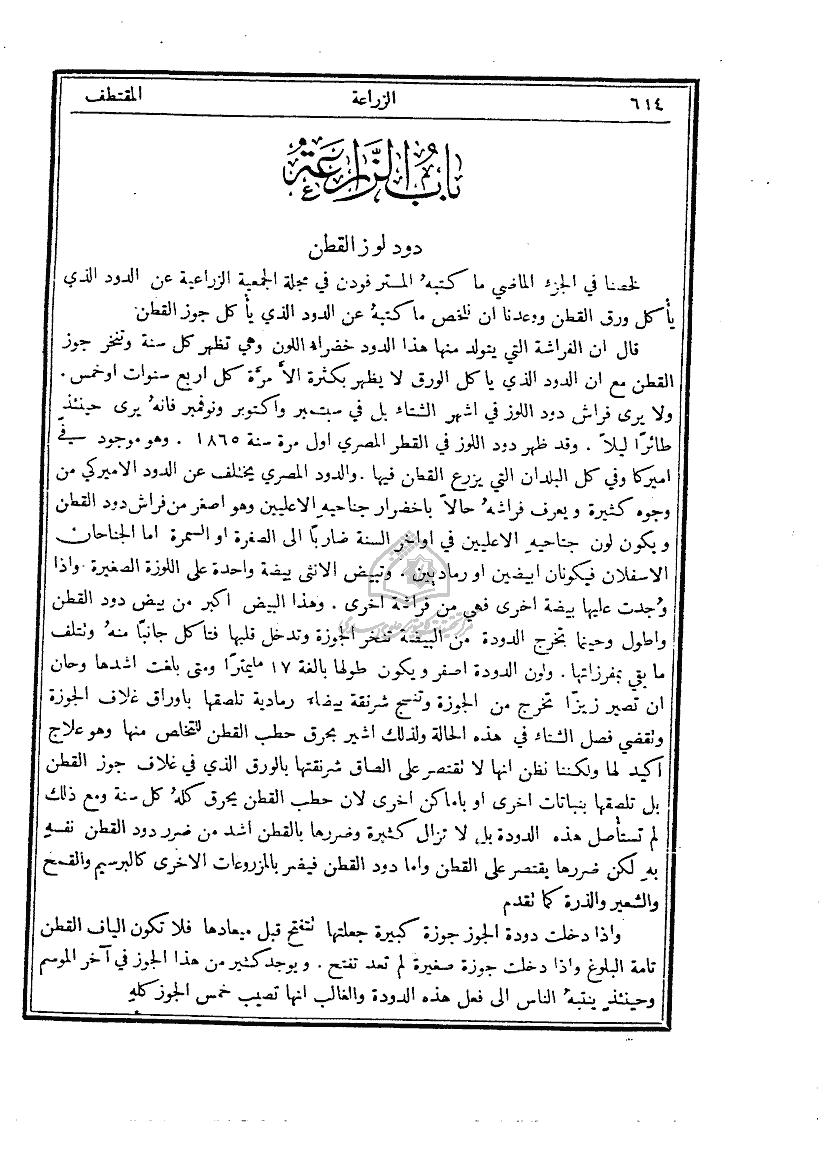 ٦١٤ الزراعة المقتطف
باب الزراعة
دود لوز القطن
لخصنا في الجزء الماضي ما كتبهُ المستر فودن في مجلة الجمعية الزراعية عن الدود الذي
يأكل ورق القطن ووعدنا ان نلخص ما كتبهُ عن الدود الذي يأكل جوز القطن
قال ان الفراشة التي يتولد منها هذا الدود خضراء اللون وهي تظهر كل سنة وتنخر جوز
القطن مع ان الدود الذي ياكل الورق لا يظهر بكثرة الاَّ مرَّة كل اربع سنوات او خمس .
ولا يرى فراش دود اللوز في اشهر الشتاء بل في سبتمبر واكتوبر ونوفمبر فانهُ يرى حينئذٍ
طائرًا ليلاً . وقد ظهر دود اللوز في القطر المصري اول مرة سنة ١٨٦٥ . وهو موجود في
اميركا وفي كل البلدان التي يزرع القطن فيها . والدود المصري يختلف عن الدود الاميركي من
وجوه كثيرة ويعرف فراشهُ حالاً باخضرار جناحيهِ الاعليين وهو اصغر من فراش دود القطن
ويكون لون جناحيهِ الاعليين في اواخر السنة ضاربًا الى الصفرة او السمرة اما الجناحان
الاسفلان فيكونان ابيضين او رماديين . وتبيض الانثى بيضة واحدة على اللوزة الصغيرة واذا
وُجدت عليها بيضة اخرى فهي من فراشة اخرى . وهذا البيض اكبر من بيض دود القطن
واطول وحينما تخرج الدودة من البيضة تنخر الجوزة وتدخل قلبها فتاكل جانبًا منهُ وتتلف
ما بقي بمفرزاتها . ولون الدودة اصفر ويكون طولها بالغة ١٧ مليمترًا ومتى بلغت اشدها وحان
ان تصير زيزًا تخرج من الجوزة وتنسج شرنقة بيضاء رمادية تلصقها باوراق غلاف الجوزة
وتقضي فصل الشتاء في هذه الحالة ولذلك اشير بحرق حطب القطن للتخلص منها وهو علاج
اكيد لها ولكننا نظن انها لا تقتصر على الصاق شرنقتها بالورق الذي في غلاف جوز القطن
بل تلصقها بنباتات اخرى او باماكن اخرى لان حطب القطن يحرق كلهُ كل سنة ومع ذلك
لم تستأصل هذه الدودة بل لا تزال كثيرة وضررها بالقطن اشد من ضرر دود القطن نفسهِ
بهِ لكن ضررها يقتصر على القطن واما دود القطن فيضر بالمزروعات الاخرى كالبرسيم والقمح
والشعير والذرة كما تقدم
واذا دخلت دودة الجوز جوزة كبيرة جعلتها تتفتح قبل ميعادها فلا تكون الياف القطن
تامة البلوغ واذا دخلت جوزة صغيرة لم تعد تفتح . ويوجد كثير من هذا الجوز في آخر الموسم
وحينئذٍ ينتبهُ الناس الى فعل هذه الدودة والغالب انها تصيب خمس الجوز كلهِ